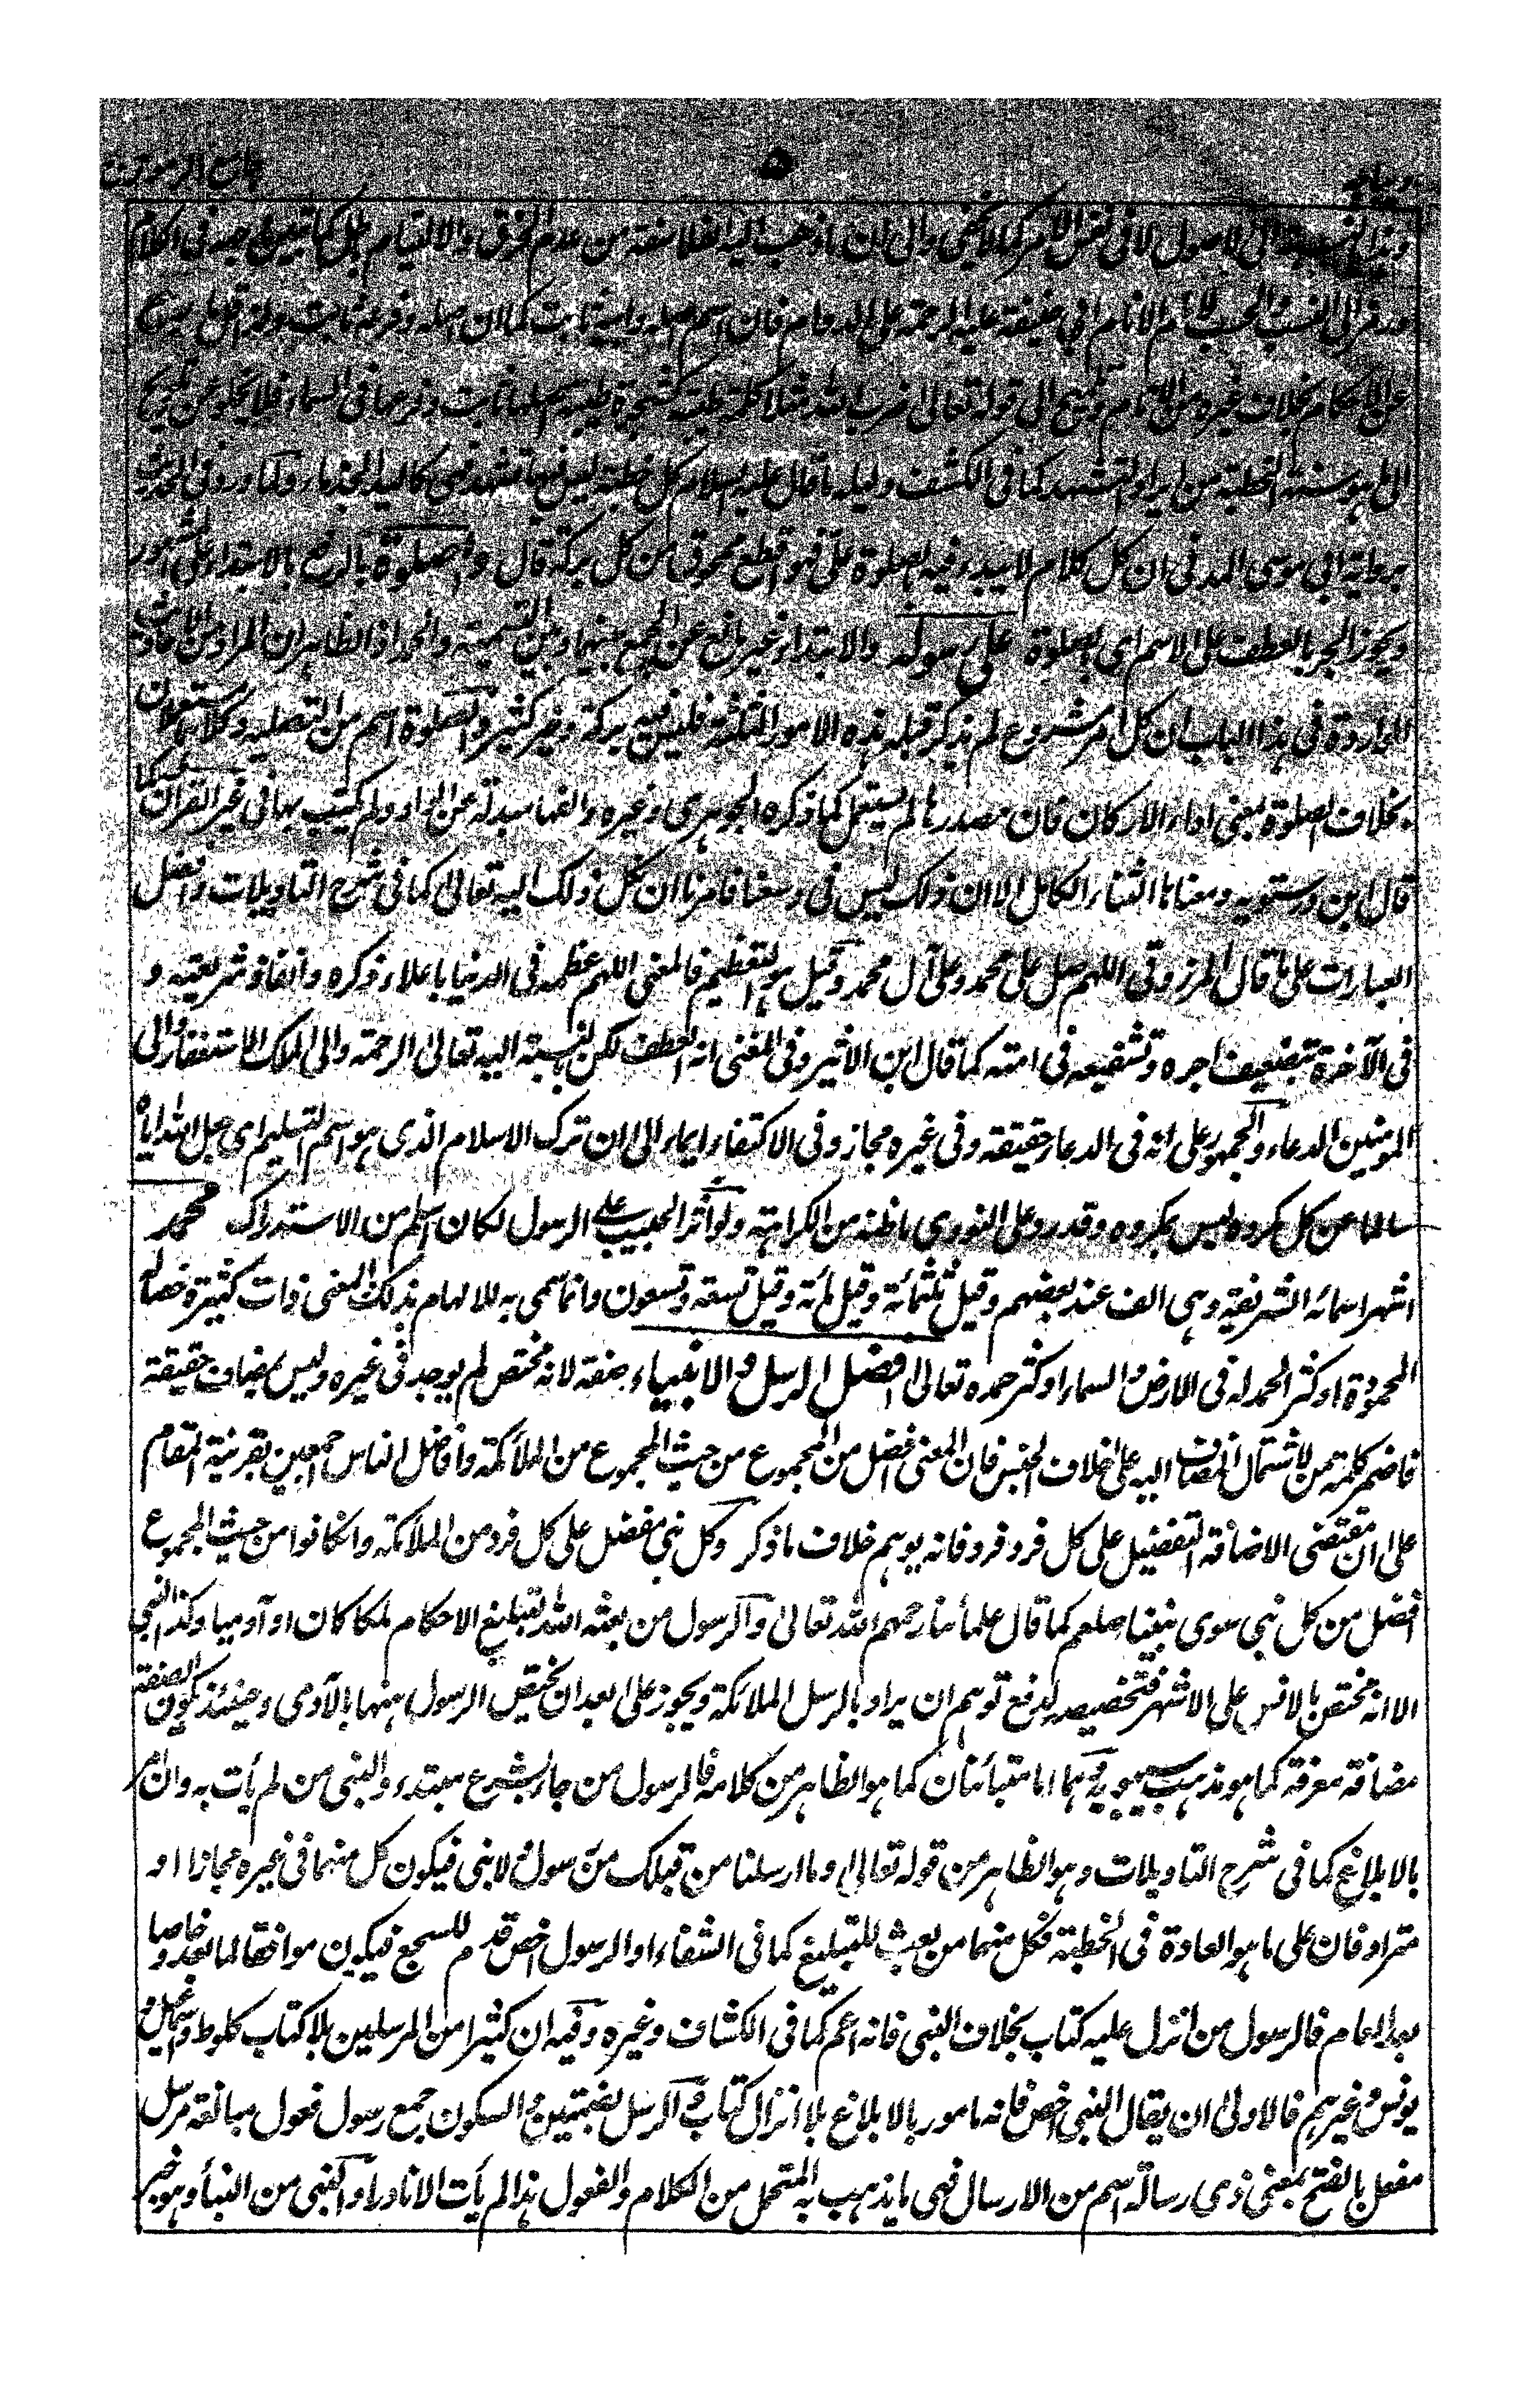 جامع الرموز ٥ ديباجه
وهذا بالنسبة الى الاصول لا فى نفس الامر كما لا يخفى والى ان ما ذهب اليه الفلاسفة من عدم الخرق والالتيام باطل كما تقرر فى الكلام
ابى حنيفة عليه الرحمة على الدوام فان اسم اصله وابيه ثابت كما ان اصله وفرعه ثابت
عن الاحكام بخلاف غيره من وتلميح الى قوله تعالى ضرب الله مثلا كلمة طيبة كشجرة طيبة اصلها ثابت وفرعها فى السماء فلا يخلو عن تلميح
الى ما هو سنة الخطبة من ايراد التشهد كما فى الكشف ودليله ما قال عليه السلام كل خطبة ليس فيها تشهد فهى كاليد الجذماء وكما ورد فى الحديث
برواية ابى موسى المدنى ان كل كلام لا يبدء فيه بالصلوة على فهو اقطع ممحوق من كل بركة قال والصلوة بالرفع بالابتداء على المشهور
ويجوز الجر بالعطف على الاسم اى بالصلوة على رسوله والابتداء غير مانع عن الجمع بينهما وبين التسمية والحمد اذ الظاهر ان المراد من الاحاديث
الواردة فى هذا الباب ان كل امر مشروع لم يذكر قبله هذه الامور الثلثة فليس فيه بركة وخير كثير والصلوة اسم من التصلية وكلاهما مستعملان
بخلاف الصلوة بمعنى اداء الاركان فان مصدرها لم يستعمل كما ذكره الجوهرى وغيره والفها مبدلة عن الواو ولم يكتب بها فى غير القران كما
قال ابن درستويه ومعناها الثناء الكامل الا ان ذلك ليس فى وسعنا فامرنا ان نكل ذلك اليه تعالى كما فى شرح التاويلات وافضل
العبارات على ما قال المرزوقى اللهم صل على محمد وعلى آل محمد وقيل هو التعظيم فالمعنى اللهم عظمه فى الدنيا باعلاء ذكره وانفاذ شريعته و
فى الآخرة بتضعيف اجره وتشفيعه فى امته كما قال ابن الاثير وفى المغنى انه العطف لكن بالنسبة اليه تعالى الرحمة والى الملك الاستغفار والى
المومنين الدعاء والجمهور على انه فى الدعاء حقيقة وفى غيره مجاز وفى الاكتفاء ايماء الى ان ترك الاسلام الذى هو اسم التسليم اى جعل الله اياه
سالما عن كل مكروه ليس بمكروه وقد رد على النووى ما ظنه من الكراهة ولو آثر الحبيب على الرسول لكان اسلم من الاستدراك محمد
اشهر اسمائه الشريفة وهى الف عند بعضهم وقيل ثلثمائة وقيل مائة وقيل تسعة وتسعون وانما سمى به للالهام بذلك المعنى ذات كثيرة خصاله
المحمودة او كثر الحمد له فى الارض والسماء او كثر حمده تعالى افضل الرسل والانبياء صفة لانه مختص لم يوجد فى غيره وليس بمضاف حقيقة
فاضمر كلمة من لاشتمال المضاف اليه على خلاف الجنس فان المعنى افضل من المجموع من حيث المجموع من الملائكة وافاضل الناس اجمعين بقرينة المقام
على ان مقتضى الاضافة التفضيل على كل فرد فرد فانه يوهم خلاف ما ذكر وكل نبى مفضل على كل فرد من الملائكة وانكانوا من حيث المجموع
افضل من كل نبى سوى نبينا صلعم كما قال علمائنا رحمهم الله تعالى والرسول من بعثه الله لتبليغ الاحكام ملكا كان او آدميا وكذا النبى
الا انه مختص بالانس على الاشهر فتخصيصه لدفع توهم ان يراد بالرسل الملائكة ويجوز على بعد ان يختص الرسول ههنا بالآدمى وحينئذ يكون الصفة
مضافة معرفة كما هو مذهب سيبويه وهما اما متبائنان كما هو الظاهر من كلامه فالرسول من جاء بشرع مبتدء والنبى من لم يأت به وان امر
بالابلاغ كما فى شرح التاويلات وهو الظاهر من قوله تعالى وما ارسلنا من قبلك من رسول ولا نبى فيكون كل منهما فى غيره مجازا او
مترادفان على ما هو العادة فى الخطبة فكل منهما من بعث للتبليغ كما فى الشفاء او الرسول اخص قدم للسجع فيكون موافقا لما بعد وخاصا
بعد العام فالرسول من انزل عليه كتاب بخلاف النبى فانه اعم كما فى الكشاف وغيره وفيه ان كثيرا من المرسلين بلا كتاب كلوط واسمعيل و
يونس وغيرهم فالاولى ان يقال النبى اخص فانه مامور بالابلاغ بلا انزال كتاب والرسل بضمتين والسكون جمع رسول فعول مبالغة مرسل
مفعل بالفتح بمعنى ذى رسالة اسم من الارسال فهى ما يذهب به المتحمل من الكلام والفعول هذا لم يأت الا نادرا والنبى من النبأ وهو خبر